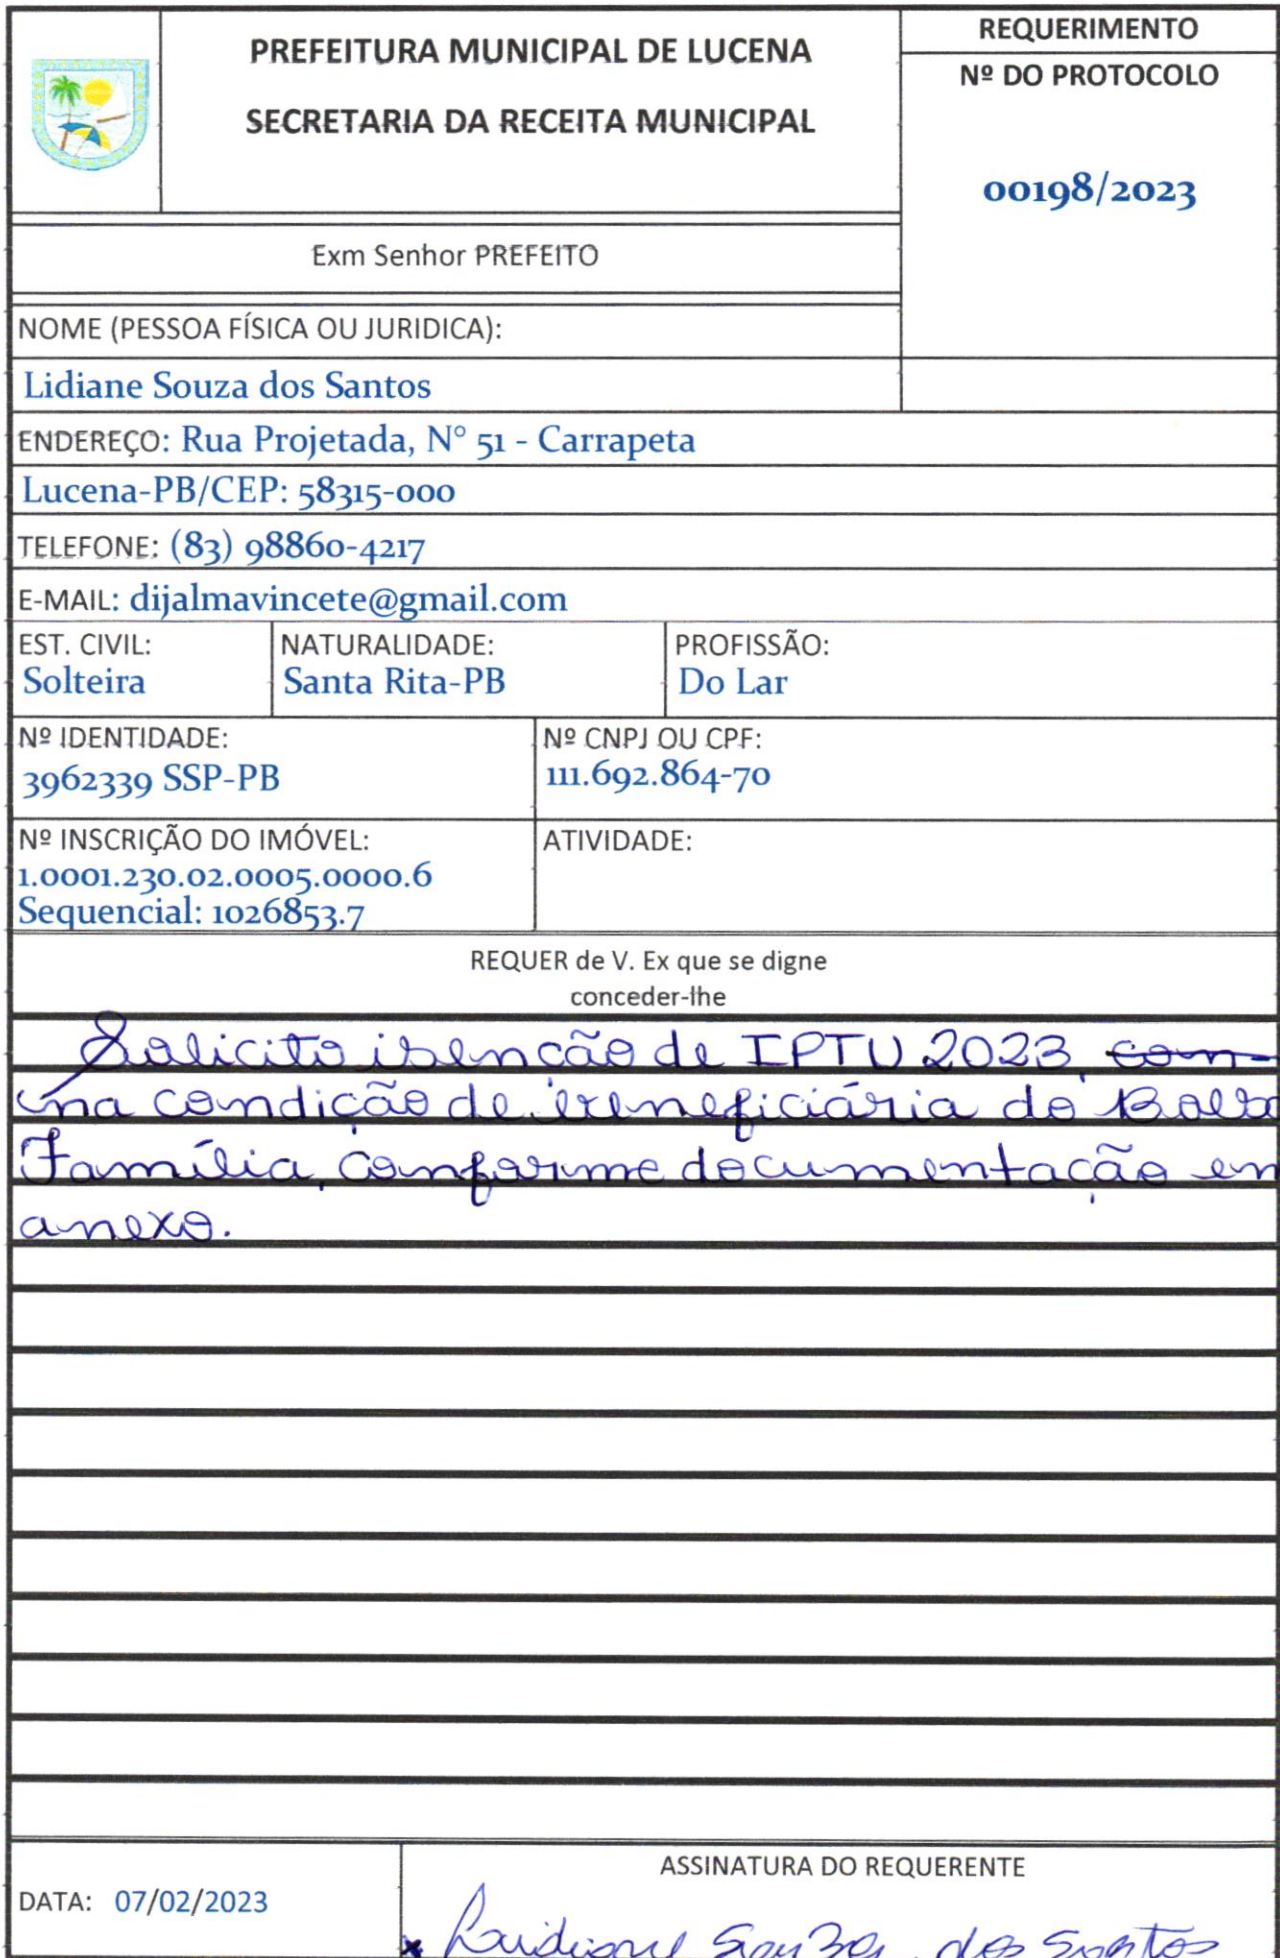 PREFEITURA MUNICIPAL DE LUCENA
SECRETARIA DA RECEITA MUNICIPAL
REQUERIMENTO
Nº DO PROTOCOLO
00198/2023
Exm Senhor PREFEITO
NOME (PESSOA FÍSICA OU JURIDICA):
Lidiane Souza dos Santos
ENDEREÇO: Rua Projetada, N° 51 - Carrapeta
Lucena-PB/CEP: 58315-000
TELEFONE: (83) 98860-4217
E-MAIL: dijalmavincete@gmail.com
EST. CIVIL:
Solteira
NATURALIDADE:
Santa Rita-PB
PROFISSÃO:
Do Lar
Nº IDENTIDADE:
3962339 SSP-PB
Nº CNPJ OU CPF:
111.692.864-70
Nº INSCRIÇÃO DO IMÓVEL:
1.0001.230.02.0005.0000.6
Sequencial: 1026853.7
ATIVIDADE:
REQUER de V. Ex que se digne
conceder-lhe
Solicito isenção de IPTU 2023, com
na condição de beneficiária do Bolsa
Família, conforme documentação em
anexo.
DATA: 07/02/2023
ASSINATURA DO REQUERENTE
x Lidiane Souza dos Santos